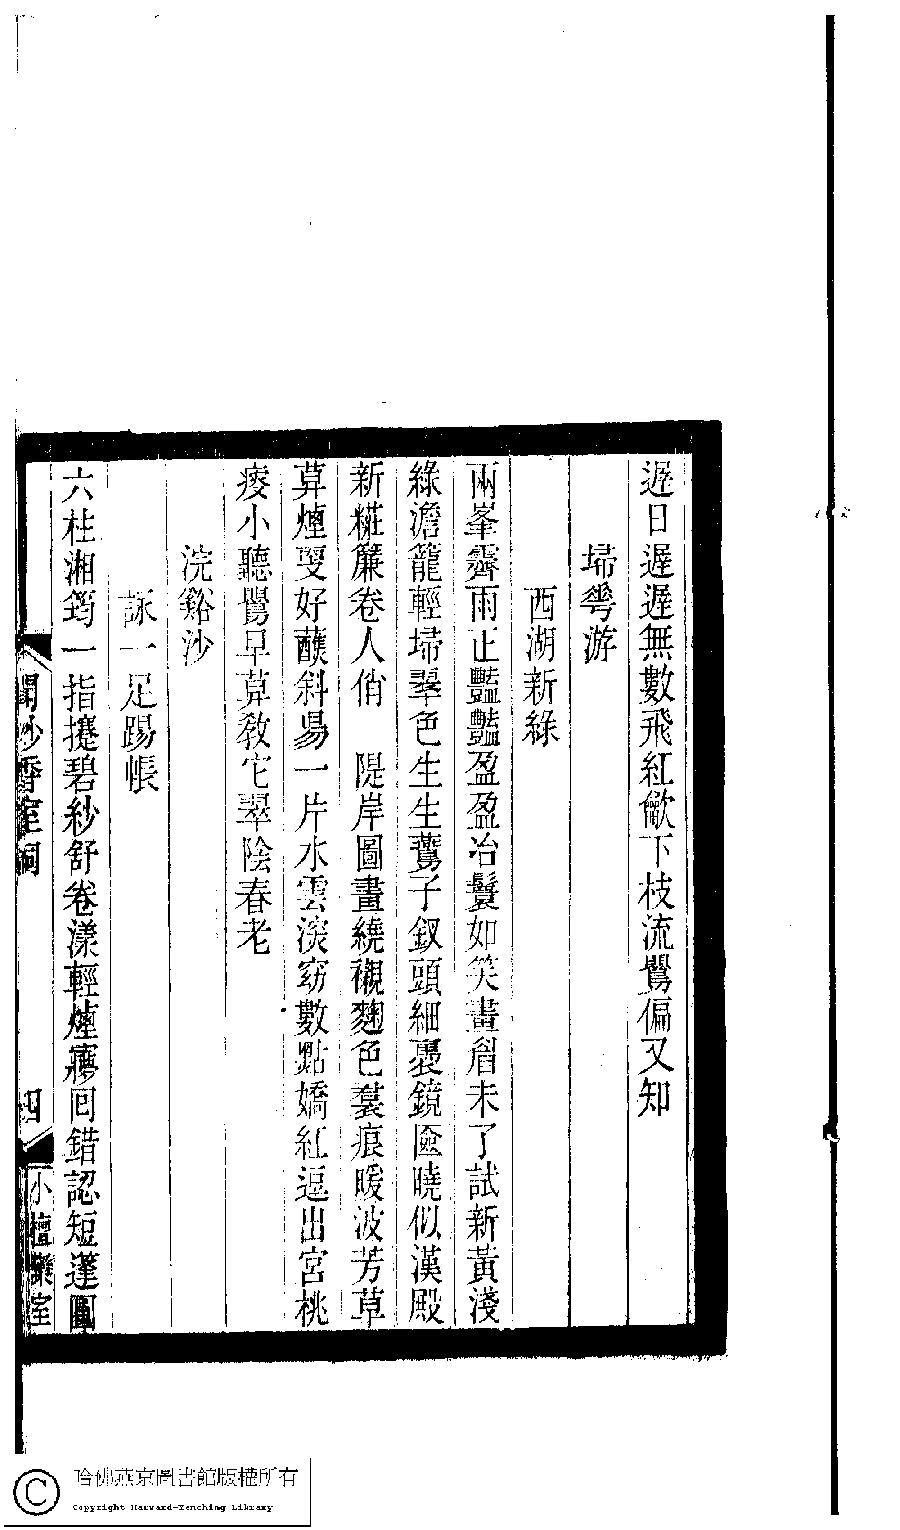 遲日遲遲無數飛紅歛下枝流鸎偏又知
埽蕚游
西湖新綠
兩峯霽雨正豔豔盈盈冶鬟如笑畫眉未了試新黃淺
綠澹籠輕埽翠色生生鷰子釵頭細裹鏡匳曉似漢殿
新糚簾卷人俏　隄岸圖畫繞襯麴色裠痕暖波芳草
算煙叟好蘸斜昜一片水雲淡窈數點嬌紅逗出宮桃
痩小聽鸎早算敎它翠陰春老
浣谿沙
詠一足踢帳
六柱湘筠一指㩗碧紗舒卷漾輕煙寢囘錯認短篷圓
聞妙香室詞
四
小檀欒室
哈佛燕京圖書館版權所有
Copyright Harvard-Yenching Library